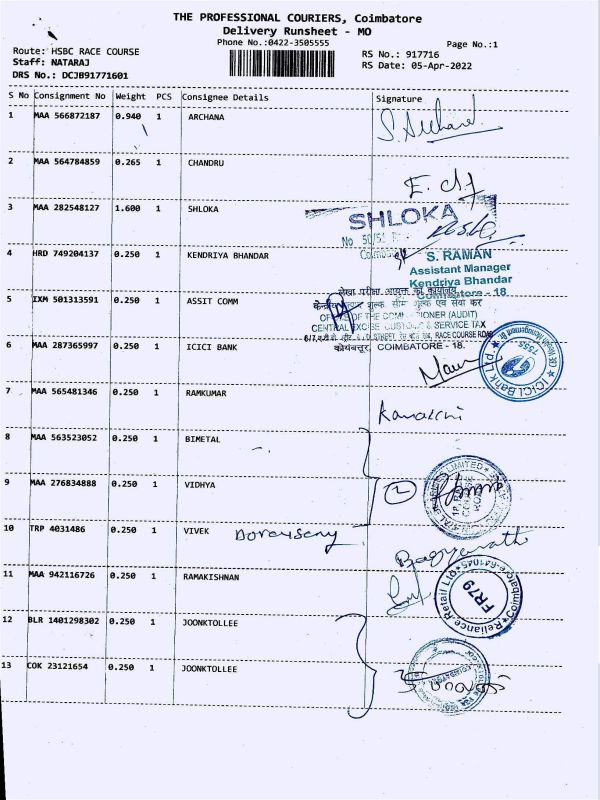 THE PROFESSIONAL COURIERS, Coimbatore
Delivery Runsheet - MO
Phone No.:0422-3505555
Page No.:1
Route: HSBC RACE COURSE
RS No.: 917716
Staff: NATARAJ
RS Date: 05-Apr-2022
DRS No.: DCJB91771601
S No Consignment No Weight PCS Consignee Details Signature
1 MAA 566872187 0.940 1 ARCHANA
2 MAA 564784859 0.265 1 CHANDRU
3 MAA 282548127 1.600 1 SHLOKA
SHLOKA
4 HRD 749204137 0.250 1 KENDRIYA BHANDAR
S. RAMAN
Assistant Manager
Kendriya Bhandar
Coimbatore - 18
5 IXM 501313591 0.250 1 ASSIT COMM
CENTRAL EXCISE CUSTOMS & SERVICE TAX
RACE COURSE ROAD
कोयंबत्तूर, COIMBATORE - 18.
6 MAA 287365997 0.250 1 ICICI BANK
ICICI Bank
7 MAA 565481346 0.250 1 RAMKUMAR
8 MAA 563523052 0.250 1 BIMETAL
9 MAA 276834888 0.250 1 VIDHYA
2
10 TRP 4031486 0.250 1 VIVEK
11 MAA 942116726 0.250 1 RAMAKISHNAN
Reliance Retail Ltd * Coimbatore-641045 *
FR79
12 BLR 1401298302 0.250 1 JOONKTOLLEE
13 COK 23121654 0.250 1 JOONKTOLLEE